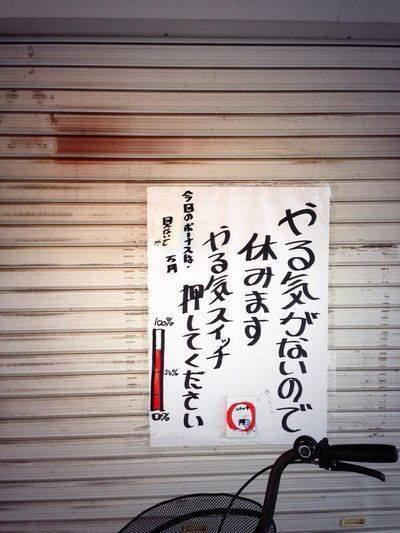 やる気がないので
休みます
やる気スイッチ
押してください
今日のボーナスは・
万円
見ないで
100%
50%
0%
押